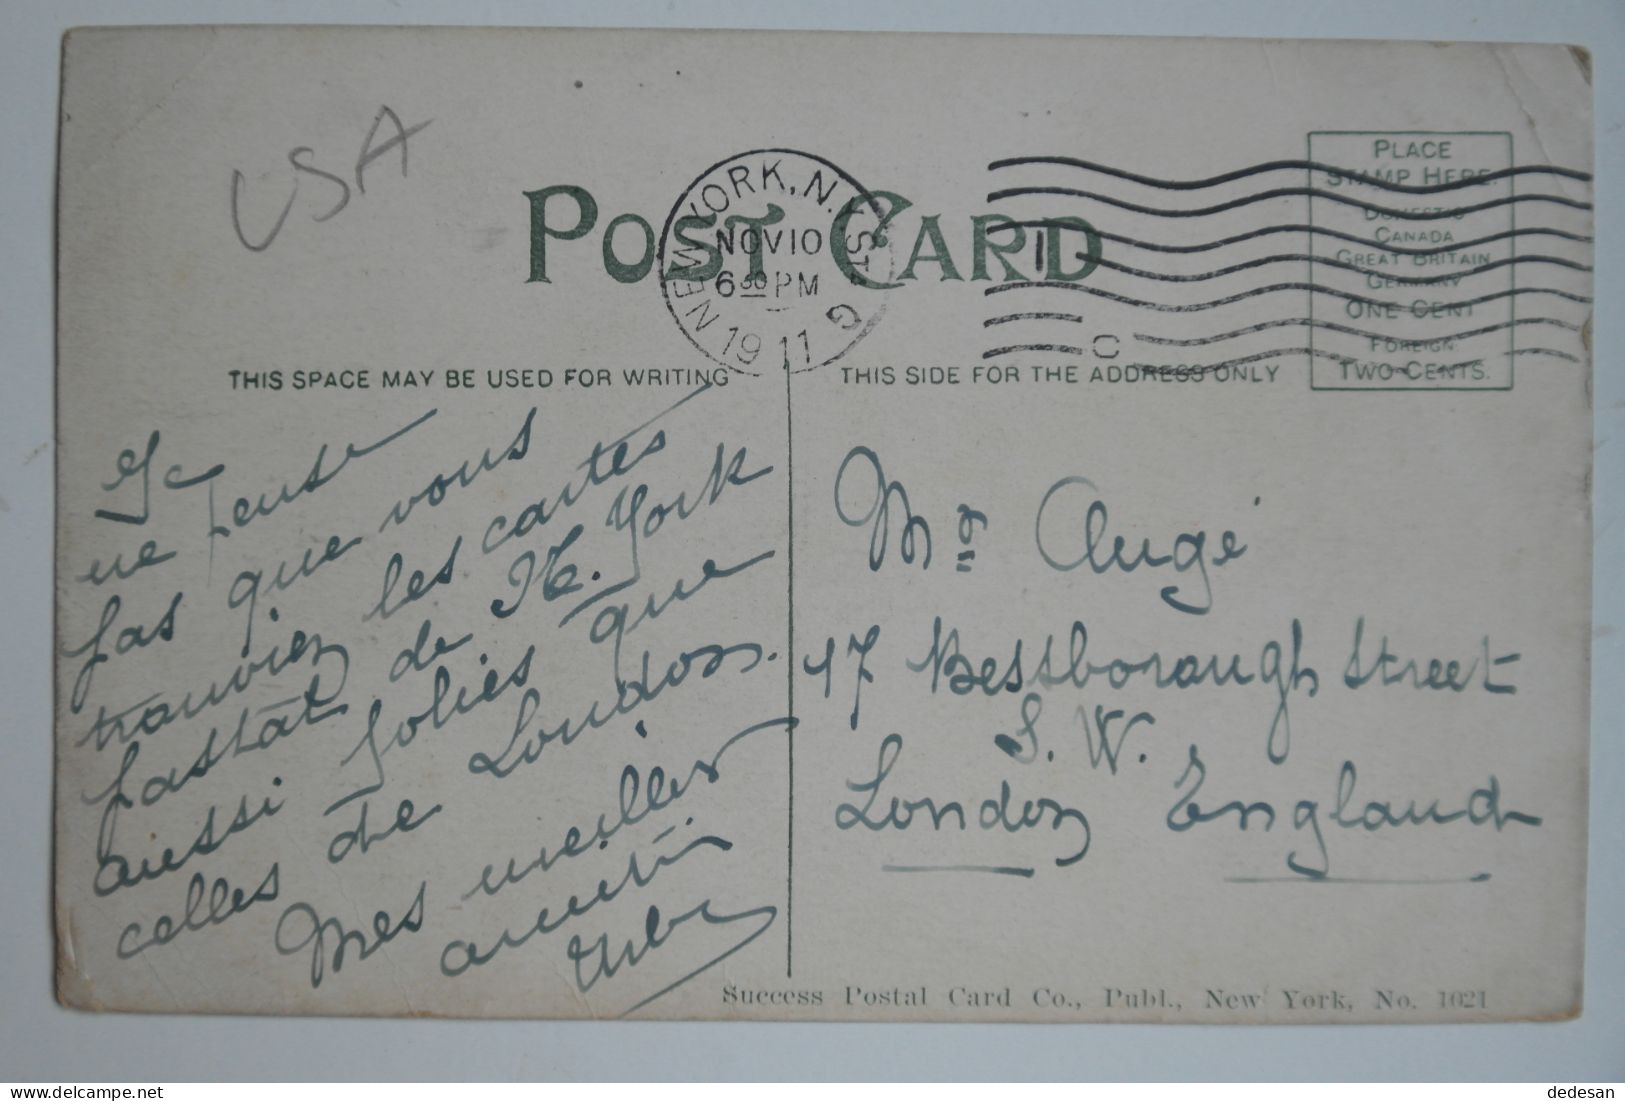 USA
POST CARD
NEW YORK, N.Y. STA. G
NOV 10
6 30 PM
1911
1
PLACE
STAMP HERE.
DOMESTIC
CANADA
GREAT BRITAIN
GERMANY
ONE CENT
FOREIGN
TWO CENTS.
THIS SPACE MAY BE USED FOR WRITING
THIS SIDE FOR THE ADDRESS ONLY
Je
ne pense
pas que vous
trouviez les cartes
postal de N. York
aussi jolies que
celles de London.
Mes meilles
Mr Augé
17 Bessborough Street
S. W.
London England
Success Postal Card Co., Publ., New York, No. 1021
delcampe.net
dedesan